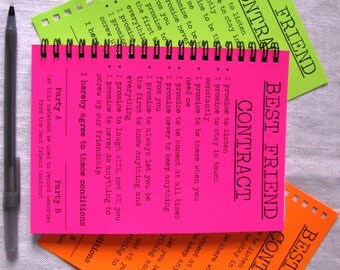 BEST FRIEND
CONTRACT
• I promise to listen
• I promise to stay in touch
constantly
• I promise to be there when you
need me
• I promise to be honest at all times
• I promise never to keep anything
from you
• I promise to always let you be
the first to know anything and
everything
• I promise to laugh WITH, not AT, you
• I promise to never do anything to
screw up our friendship
I hereby agree to these conditions
Party A Party B
Let this notebook be used to record memories
from the Best Friend Contract
BEST
CO
ditions